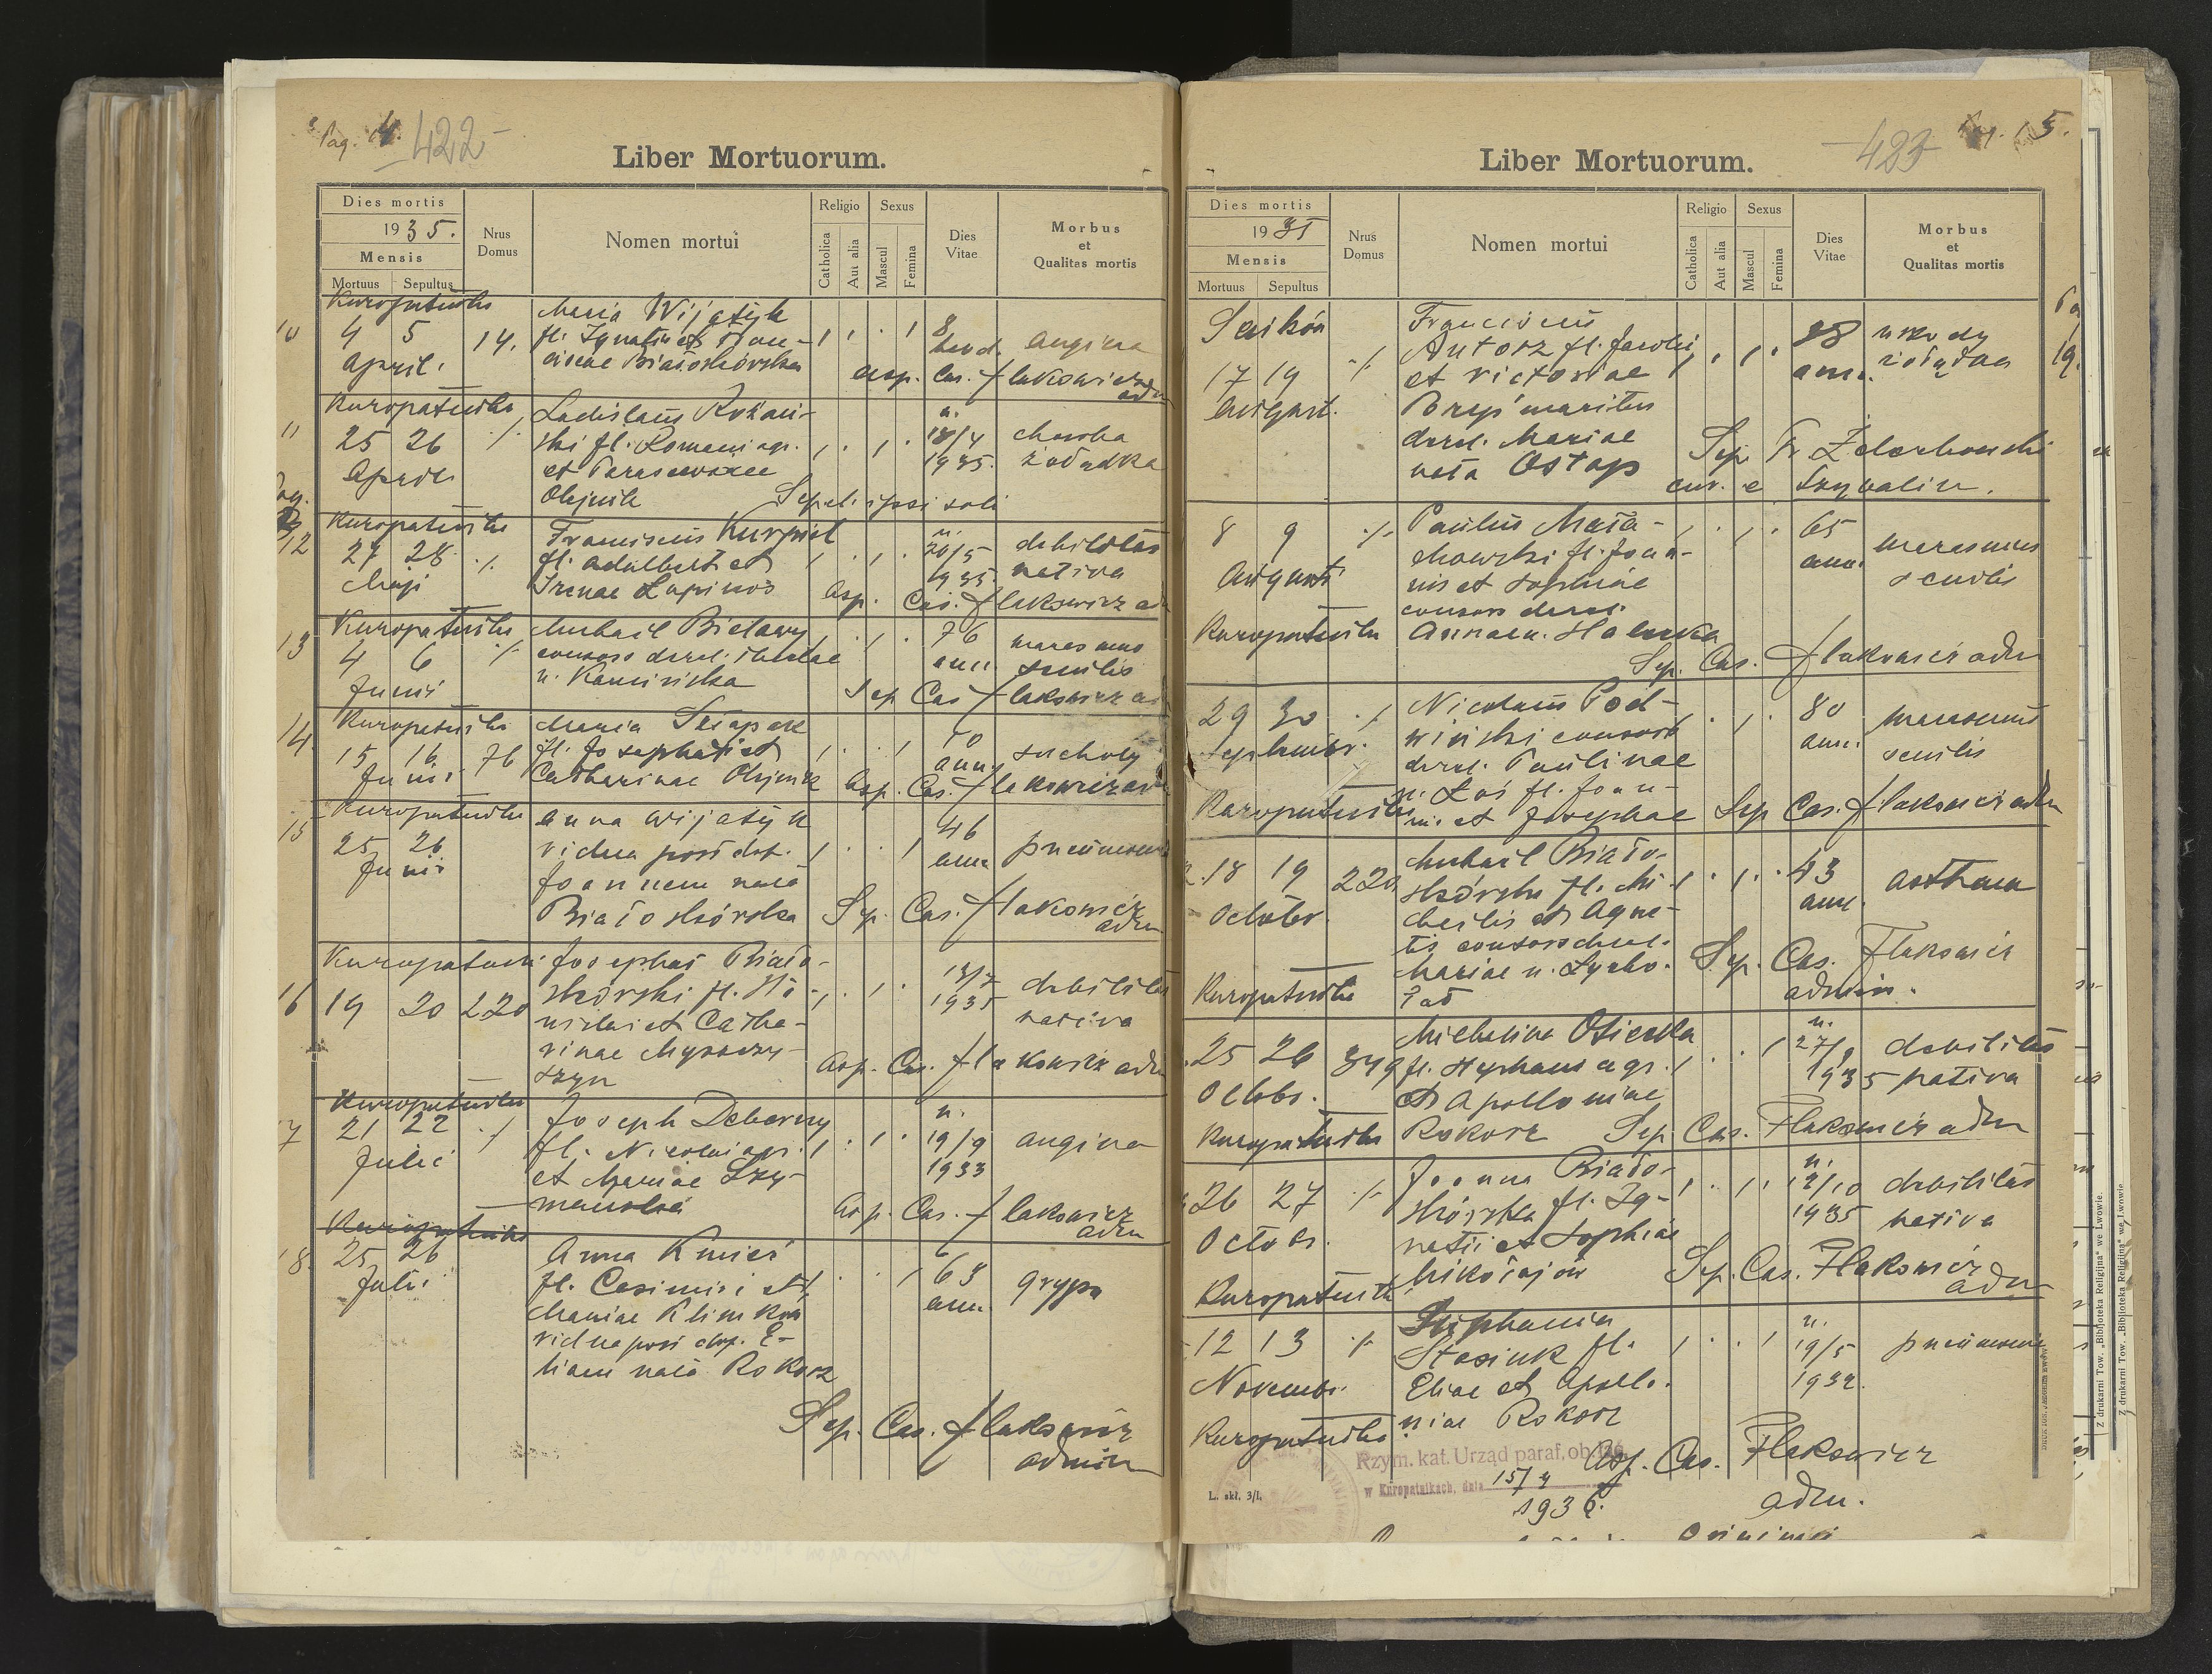 Pag. 4. 422
Liber Mortuorum.
Dies mortis
1935.
Mensis
Mortuus Sepultus
Nrus Domus
Nomen mortui
Religio
Catholica
Aut alia
Sexus
Mascul
Femina
Dies Vitae
Morbus
et
Qualitas mortis
10
Kuropatniki
4 5
April.
14.
Maria Wijatyk
fl. Ignatii et Fran-
ciscae Białoskórska
8
angina
asp. Cas. Flakowicz adm
11
Kuropatniki
25 26
Aprilis
Ladislaus
fl. Romani
et Parascevae
Olejnik
n.
18/4
1935.
choroba
żołądka
Sepel. ipsi soli
12
Kuropatniki
27 28
Maji
Franciscus Kurpiel
fl. Adalberti et
Irenae Łapinos
n.
20/5
1935
debilitas
nativa
Asp. Cas. Flakowicz adm
13
Kuropatniki
4 6
Junii
Michael Bielawy
consors derel. Theclae
n. Kamińska
76
ann.
marasmus
senilis
Sep. Cas. Flakowicz ad
14.
Kuropatniki
15 16
Junii
76
Maria
fl. Josephati et
Catharinae Olejnik
ann.
suchoty
Asp. Cas. Flakowicz adm
15
Kuropatniki
25 26
Junii
Anna Wijatyk
vidua post def.
Joannem nata
Białoskórska
46
ann
pneumonia
Sep. Cas. Flakowicz
adm
16
Kuropatniki
19 20 220
Josephat Biało-
skórski fl. Sta-
nislai et Catha-
rinae Myszczy-
szyn
13/7
1935
debilitas
nativa
Asp. Cas. Flakowicz adm
7
Kuropatniki
21 22
Julii
Joseph Deberny
fl. Nicolai agr.
et Mariae Szy-
manska
n.
19/9
1933
angina
Asp. Cas. Flakowicz
adm
18.
Kuropatniki
25 26
Julii
Anna Kmieć
fl. Casimiri et
Mariae Klimkow
vidua post def. E-
liam nata Rokosz
63
ann.
grypa
Sep. Cas. Flakowicz
admin
423 Pag. 5.
Liber Mortuorum.
Dies mortis
1935
Mensis
Mortuus Sepultus
Nrus Domus
Nomen mortui
Religio
Catholica
Aut alia
Sexus
Mascul
Femina
Dies Vitae
Morbus
et
Qualitas mortis
17 19
August.
Franciscus
Antosz fl. Jacobi
et Victoriae
maritus
derel. Mariae
nata Ostap
ann.
wrzody
żołądka
Sep. Fr. Żelechowski
8 9
Augusti
Kuropatniki
Paulus Mała-
chowski fl. Joan-
nis et Sophiae
consors derel.
Annae n. Halucka
65
ann.
marasmus
senilis
Sep. Cas. Flakowicz adm
29 30
Septembr.
Kuropatniki
Nicolaus Pod-
wiński consors
derel. Paulinae
n. Łoś fl. Joan-
nis et Josephae
80
ann.
marasmus
senilis
Sep. Cas. Flakowicz adm
18 19 220
Octobr.
Kuropatniki
Michael Biało-
skórski fl. Mi-
chaelis et Agne-
tis consors derel.
Mariae n.
43
ann.
asthma
Sep. Cas. Flakowicz
admin.
25 26 349
Octobr.
Kuropatniki
Michalina Osiecka
fl. Stephani agr.
et Apolloniae
Rokosz
n.
27/9
1935
debilitas
nativa
Sep. Cas. Flakowicz adm
26 27
Octobr.
Kuropatniki
Joanna Biało-
skórska fl. Ig-
natii et Sophiae
Mikołajów
n.
12/10
1935
debilitas
nativa
Sep. Cas. Flakowicz
adm
12 13
Novembr.
Kuropatniki
Stephania
Stasiuk fl.
Eliae et Apollo-
niae Rokosz
n.
19/5
1932.
pneumonia
Asp. Cas. Flakowicz
adm.
Rzym. kat. Urząd paraf. ob. łać.
w Kuropatnikach, dnia 15/4
1936.
L. skł. 3/I.
Z drukarni Tow. „Bibljoteka Religijna" we Lwowie.
Z drukarni Tow. „Bibljoteka Religijna" we Lwowie.